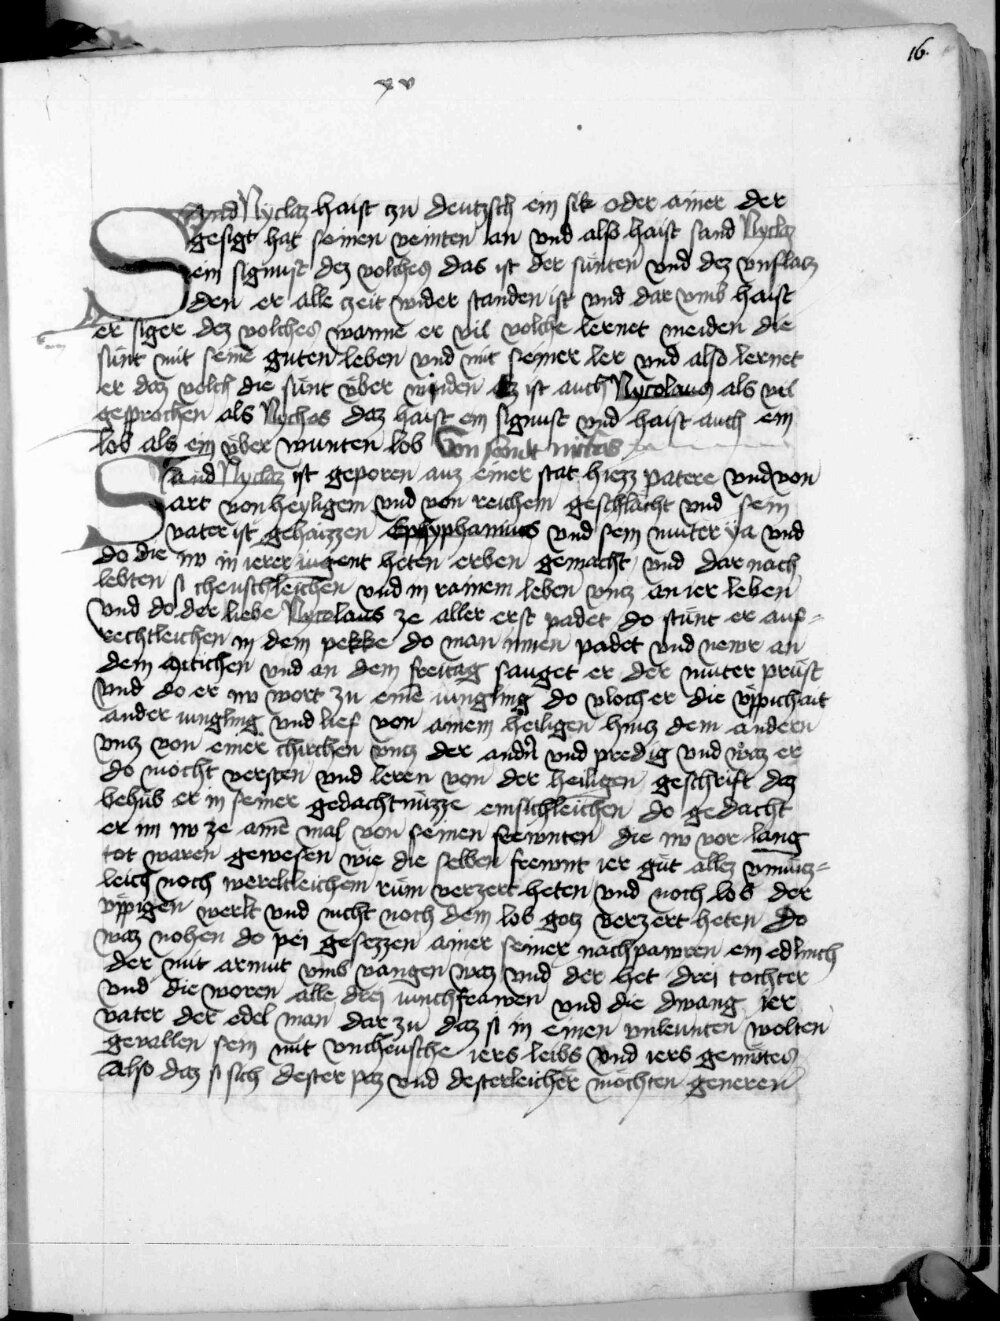 16.
xv
Sand Nyclaz haist zu deutzsch ein sik oder ainer der
gesigt hat seinen veinten an vnd also haist sand Nyclaz
ein signust dez volches das ist der sünten vnd dez vnflatz
den er alle zeit wider standen ist vnd dar vmb haist
er siger dez volches wanne er vil volche lernet meiden die
sünt mit seinē guten leben vnd mit seiner ler vnd also lernet
er daz volch die sünt vber winden ez ist auch Nycolaus als vil
gesprochen als Nychos daz haist ein signust vnd haist auch ein
lob als ein vber wunten lob Von sandt niclas
Sand Nyclaz ist geporen auz einer stat hiezz patere vnd von
art von heyligem vnd von reichem geschlächt vnd sein
vater ist gehaizzen Ephyphanius vnd sein muter ya vnd
do die nv in ierer iugent heten erben gemacht vnd dar nach
lebten si cheuschleichen vnd in rainem leben vncz an ier leben
vnd do der liebe Nycolaus ze aller erst padet do stünt er auf-
rechtleichen in dem pekke do man innen padet vnd newr an
dem mitichen vnd an dem freitag sauget er der muter prüst
vnd do er nv wort zu einē iungling do vloch er die vppichait
ander iungling vnd lief von ainem heiligen hincz dem andern
vncz von einer chirchen vncz der andn̄ vnd predig vnd waz er
do mocht versten vnd leren von der heiligen geschrift daz
behüb er in seiner gedachtnüzze einsichleichen do gedacht
er im nv ze ainē mal von seinen frewnten die nv vor lang
tot waren gewesen wie die selben frewnt ier güt allez vnnücz-
leich noch wereltleichem rüm verzert heten vnd noch lob der
vppigen werlt vnd nicht noch dem lob gotz verzert heten Do
waz nohen do pei gesezzen ainer seiner nachpawren ein edlinch
der mit armüt vmb vangen waz vnd der het drei tochter
vnd die woren alle drei iunchfrawen vnd die dwang ier
vater der edel man dar zu daz si in einen vnleunten wolten
gevallen sein mit vncheusche iers leibs vnd iers gemütes
Also daz si sich dester paz vnd desterleichër möchten generen